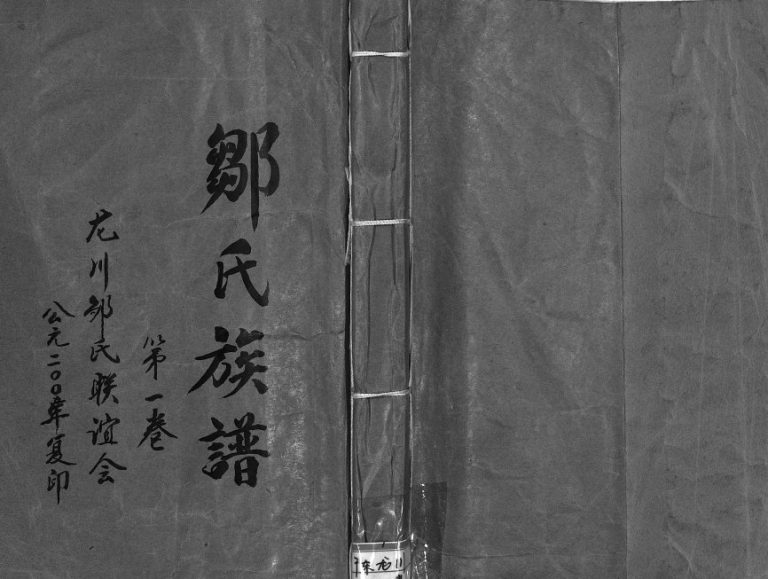 鄒氏族譜
第一卷
龙川邹氏联谊会
公元二00年复印